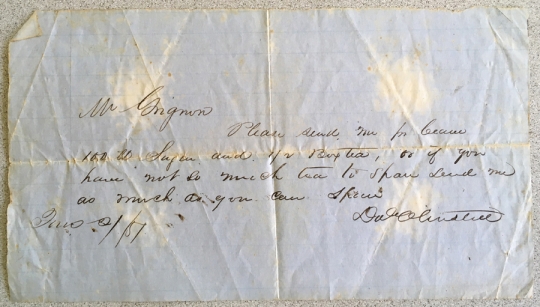 Mr Grignon
Please send me pr
100 lb Sugar and 1/2 Box tea, or if you
have not so much tea to spare send me
as much as you can spare
2/57